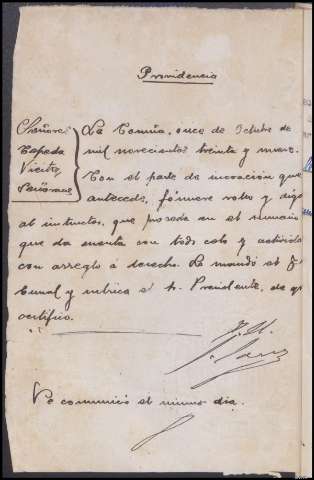 Providencia
Señores
Cepeda
Vicito
La Coruña, once de Octubre de
mil novecientos treinta y nueve.
Con el parte de incoación que
antecede, fórmese rollo y diga
al instructor, que proceda en el sumario
que da cuenta con todo celo y actividad
con arreglo á derecho. Lo mandó el Tri-
bunal y rubrica el Sr. Presidente, de que
certifico.
Se comunicó el mismo día.